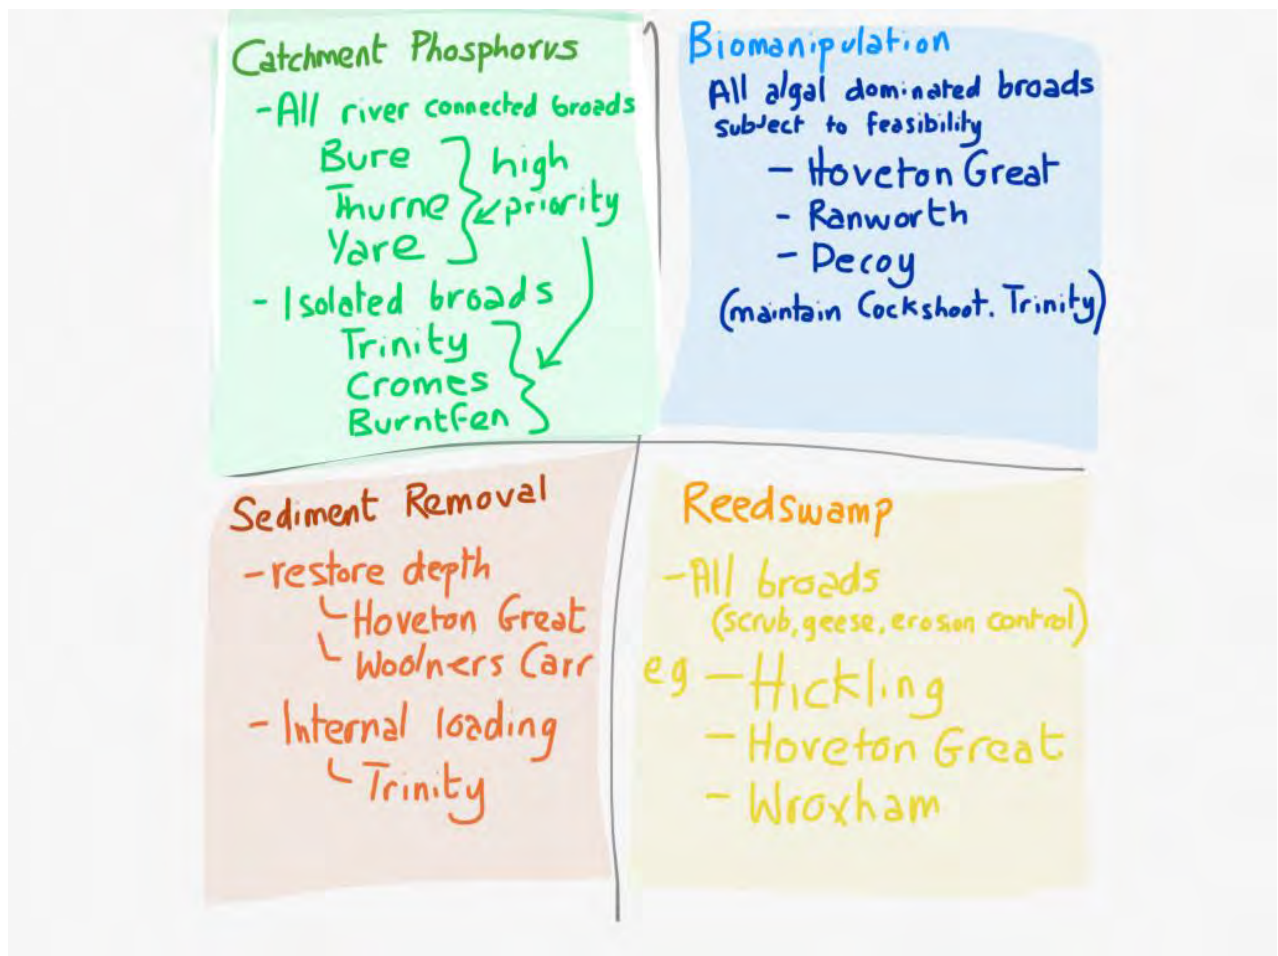 Catchment Phosphorus
- All river connected broads
Bure
Thurne
Yare
high
priority
- Isolated broads
Trinity
Cromes
Burntfen
Biomanipulation
All algal dominated broads
subject to feasibility
- Hoveton Great
- Ranworth
- Decoy
(maintain Cockshoot. Trinity)
Sediment Removal
- restore depth
Hoveton Great
Woolners Carr
- Internal loading
Trinity
Reedswamp
- All broads
(scrub, geese, erosion control)
eg - Hickling
- Hoveton Great
- Wroxham